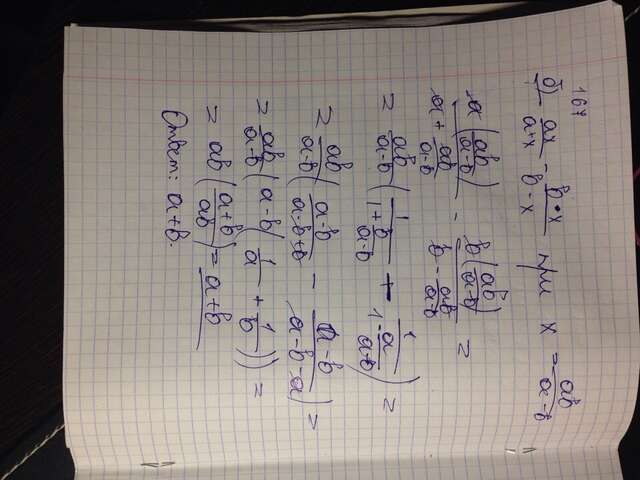 167
б) ax/(a+x) - b·x/(b-x) при x = ab/(a-b)
a(ab/(a-b))/(a + ab/(a-b)) - b(ab/(a-b))/(b - ab/(a-b)) =
= ab/(a-b) (1/(1 + b/(a-b)) - 1/(1 - a/(a-b))) =
= ab/(a-b) ((a-b)/(a-b+b) - (a-b)/(a-b-a)) =
= ab/(a-b) (a-b (1/a + 1/b)) =
= ab ((a+b)/ab) = a+b
Ответ: a+b.